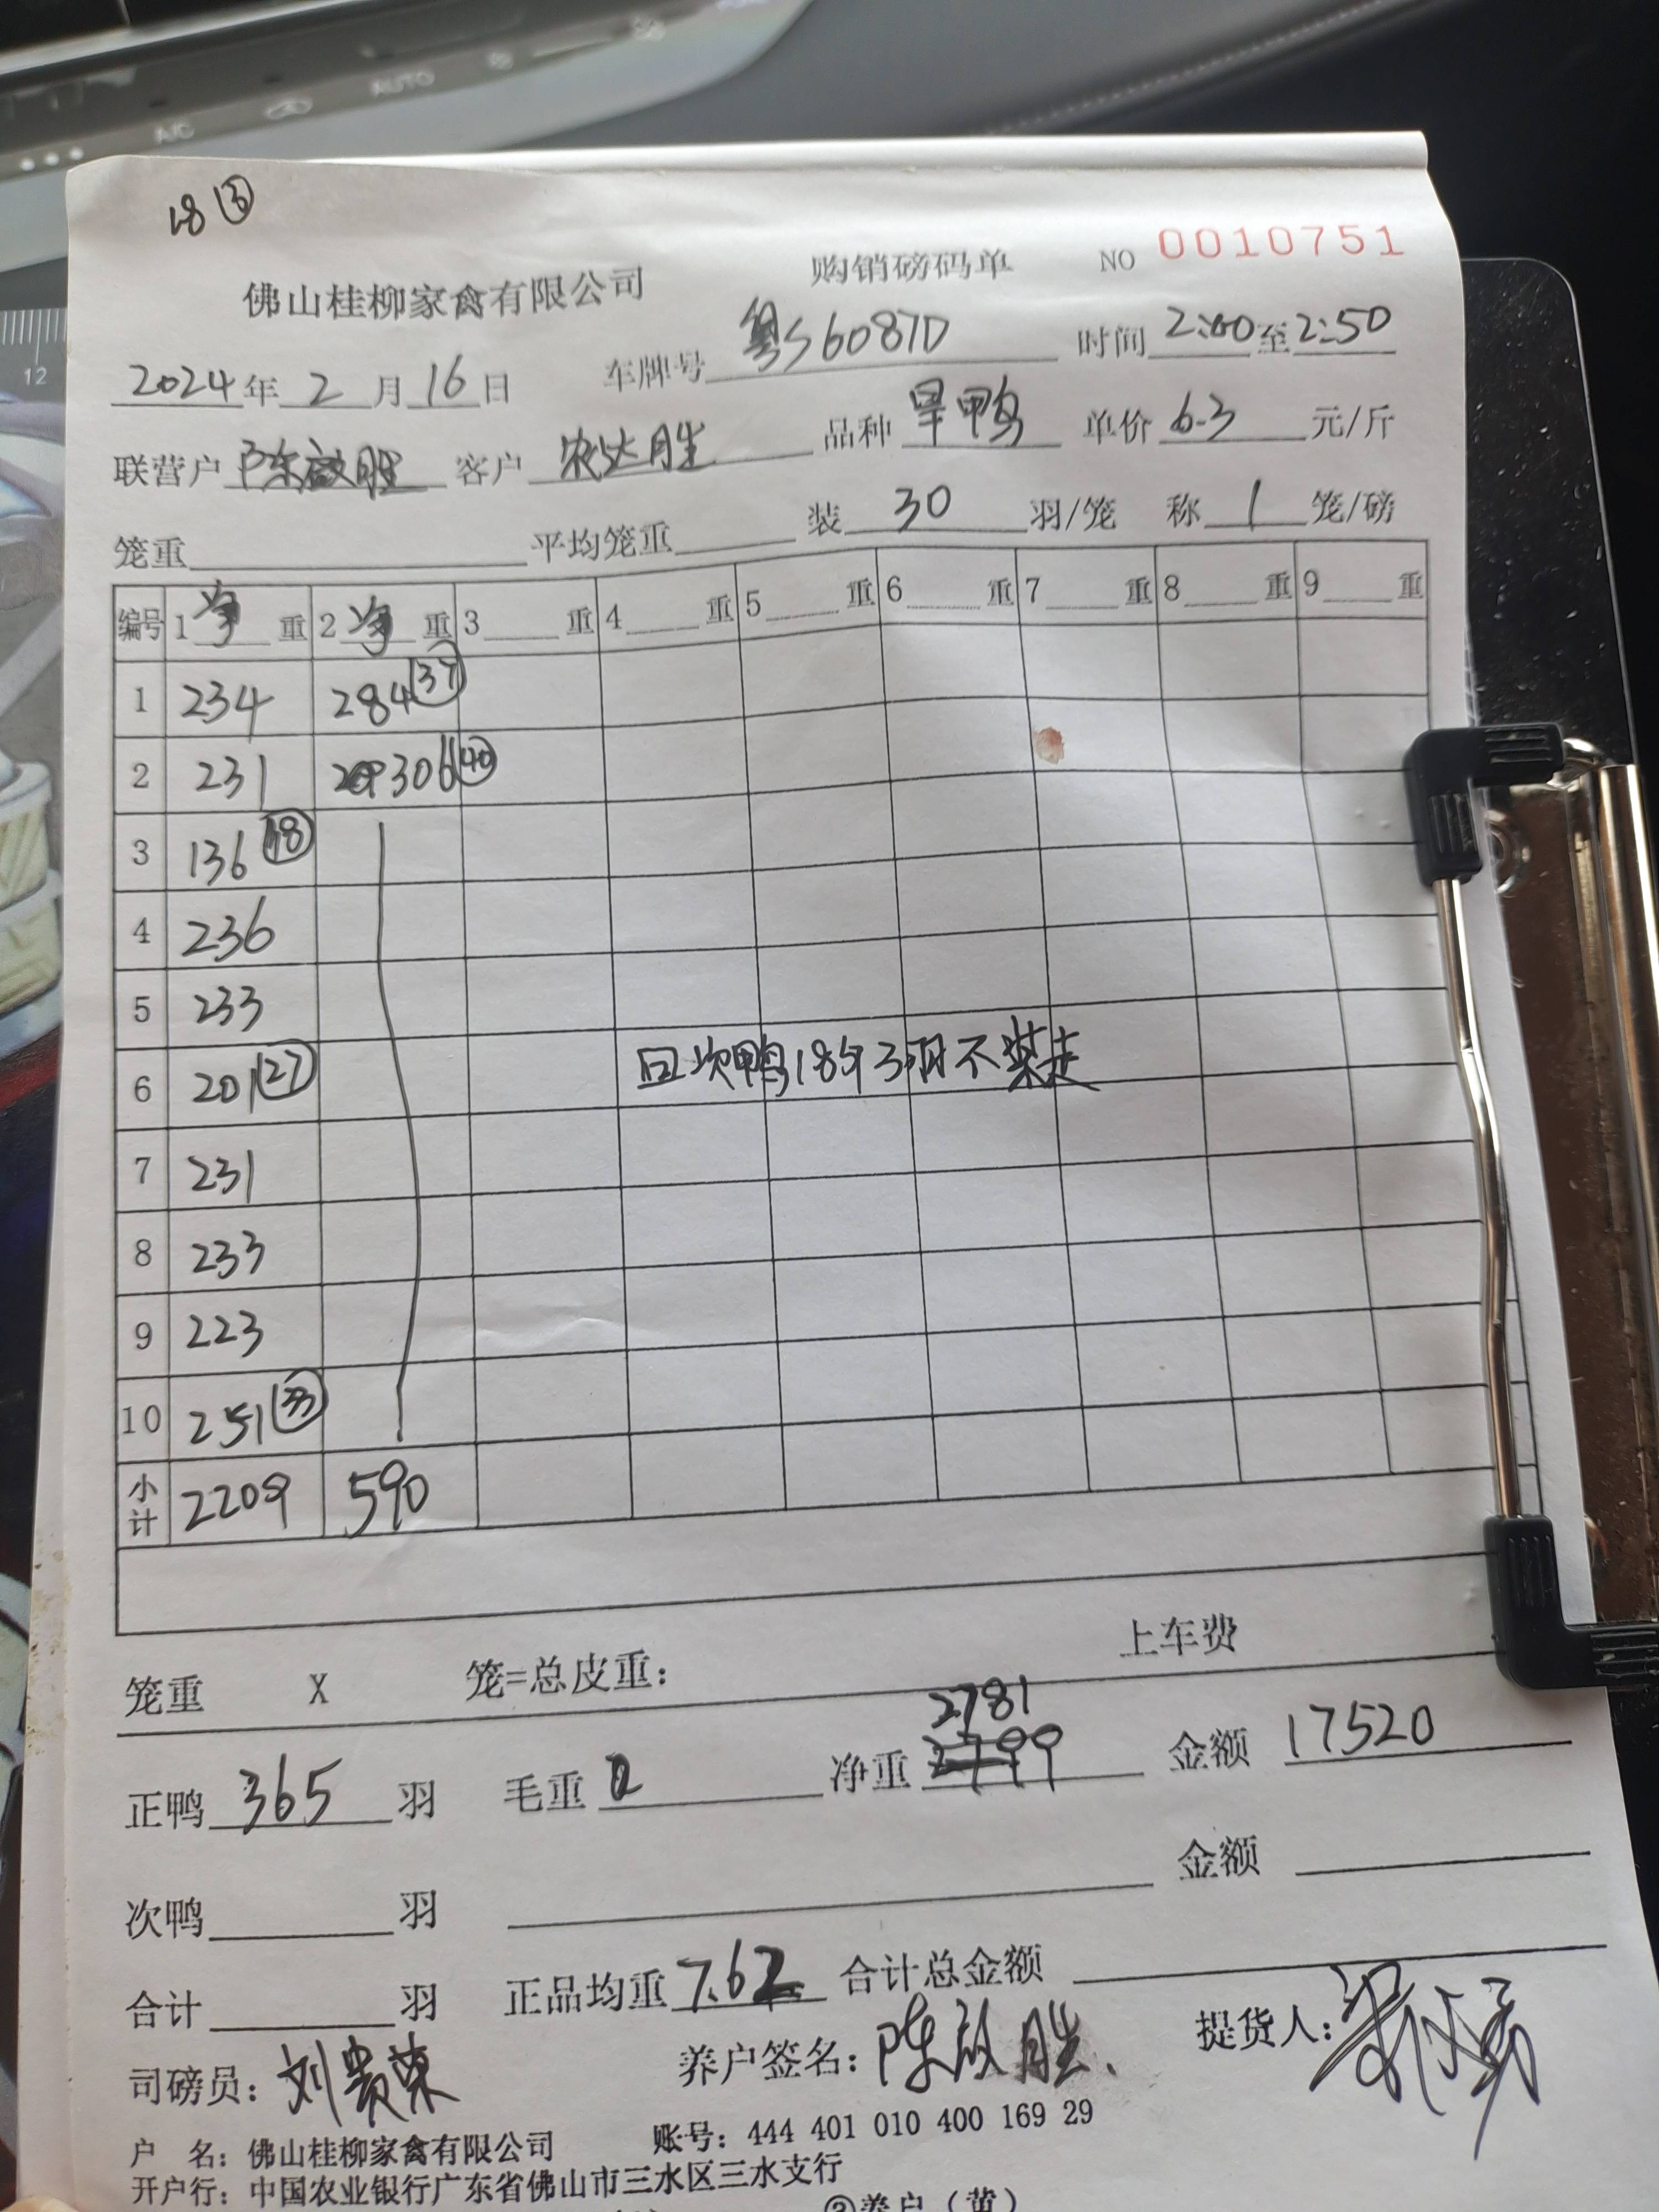 AUTO
A/C
12
18 ③
佛山桂柳家禽有限公司 购销磅码单 NO 0010751
2024年2月16日 车牌号 粤S6087D 时间 2:00至2:50
联营户 陈敌胜 客户 农达胜 品种 旱鸭 单价 6.3 元/斤
笼重 平均笼重 装 30 羽/笼 称 1 笼/磅
编号 1 净 重 2 净 重 3 重 4 重 5 重 6 重 7 重 8 重 9 重
1 234 284 (37)
2 231 306 (40)
3 136 (18)
4 236
5 233
6 201 (27) 回次鸭18斤3羽不装走
7 231
8 233
9 223
10 251 (33)
小计 2209 590
笼重 X 笼=总皮重: 上车费
2781
正鸭 365 羽 毛重 净重 2799 金额 17520
次鸭 羽 金额
合计 羽 正品均重 7.62 合计总金额
司磅员: 刘贵荣 养户签名: 陈敌胜 提货人:
户 名: 佛山桂柳家禽有限公司 账号: 444 401 010 400 169 29
开户行: 中国农业银行广东省佛山市三水区三水支行
②养户(黄)